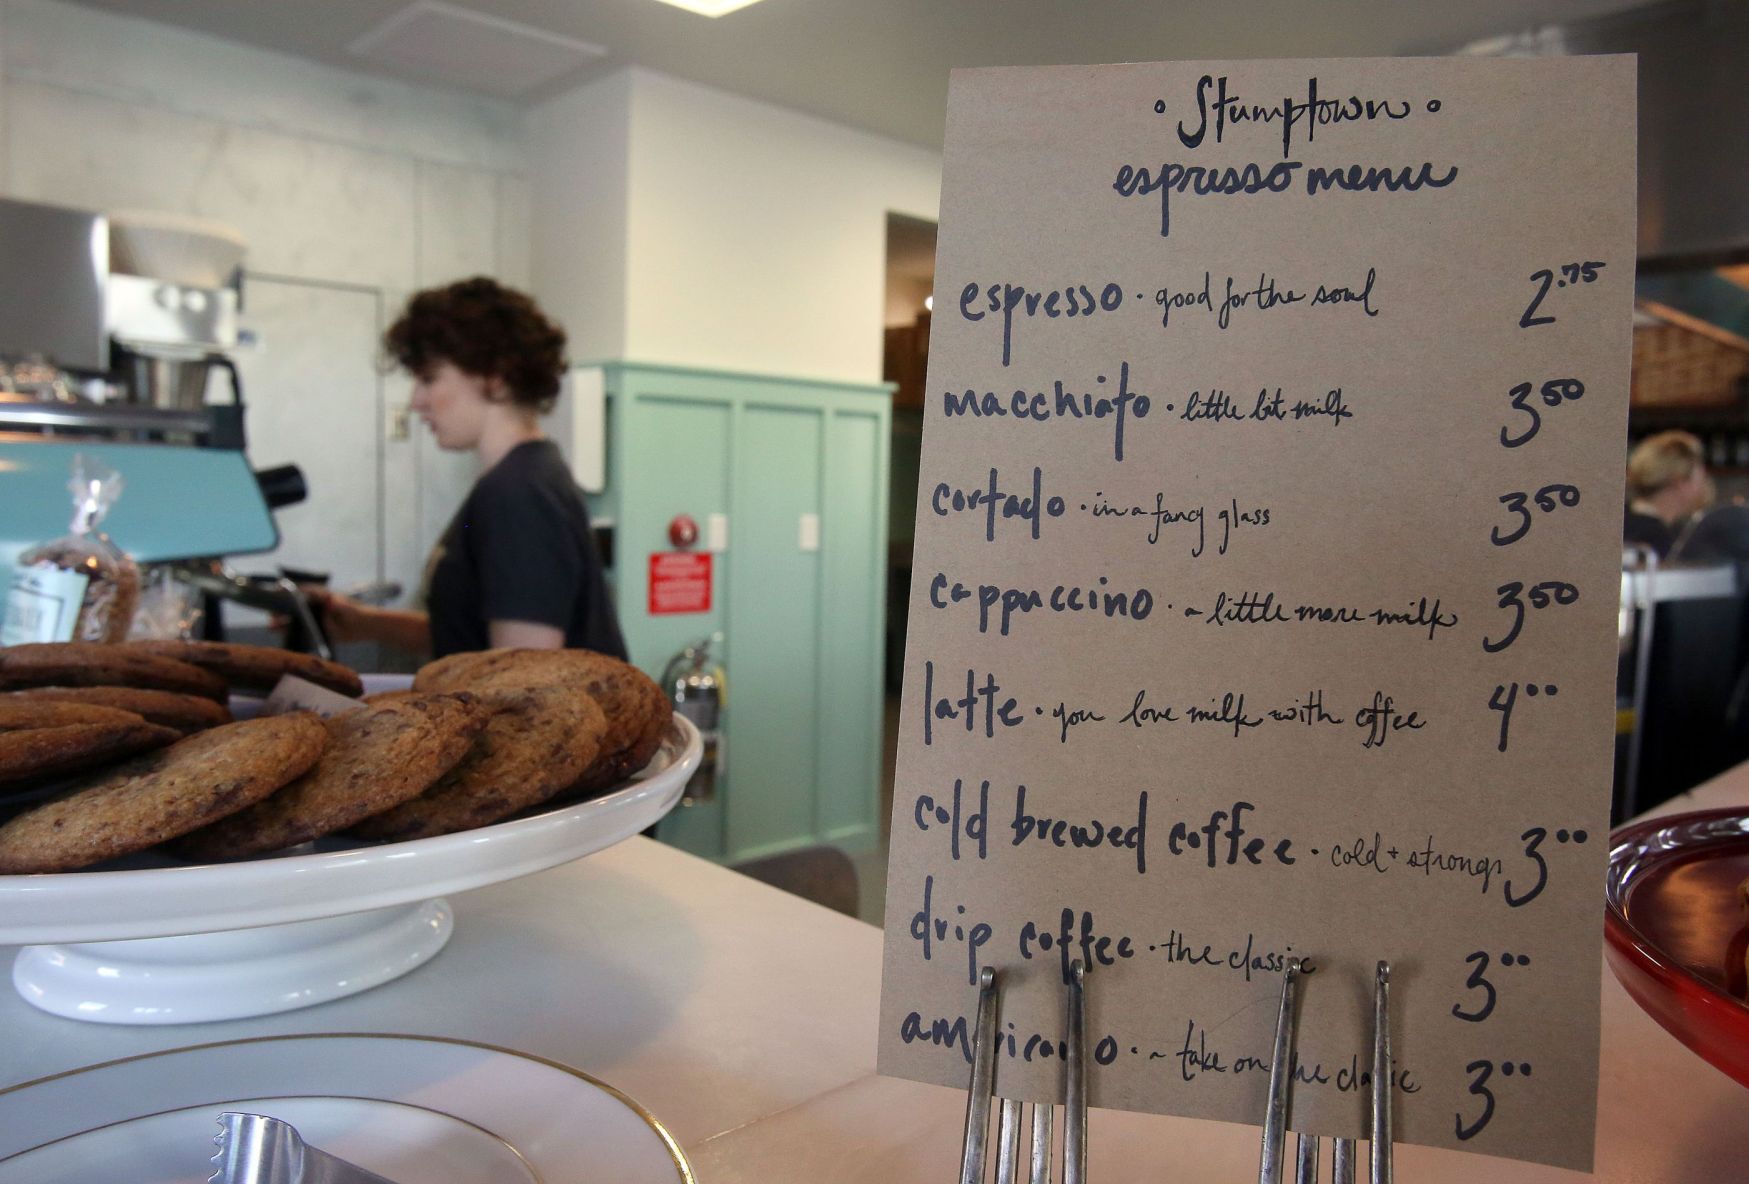 • Stumptown •
espresso menu
espresso · good for the soul 2.75
macchiato · little bit milk 3 50
cortado · in a fancy glass 3 50
cappuccino · a little more milk 3 50
latte · you love milk with coffee 4 00
cold brewed coffee · cold + strong 3 00
drip coffee · the classic 3 00
americano · a take on the classic 3 00